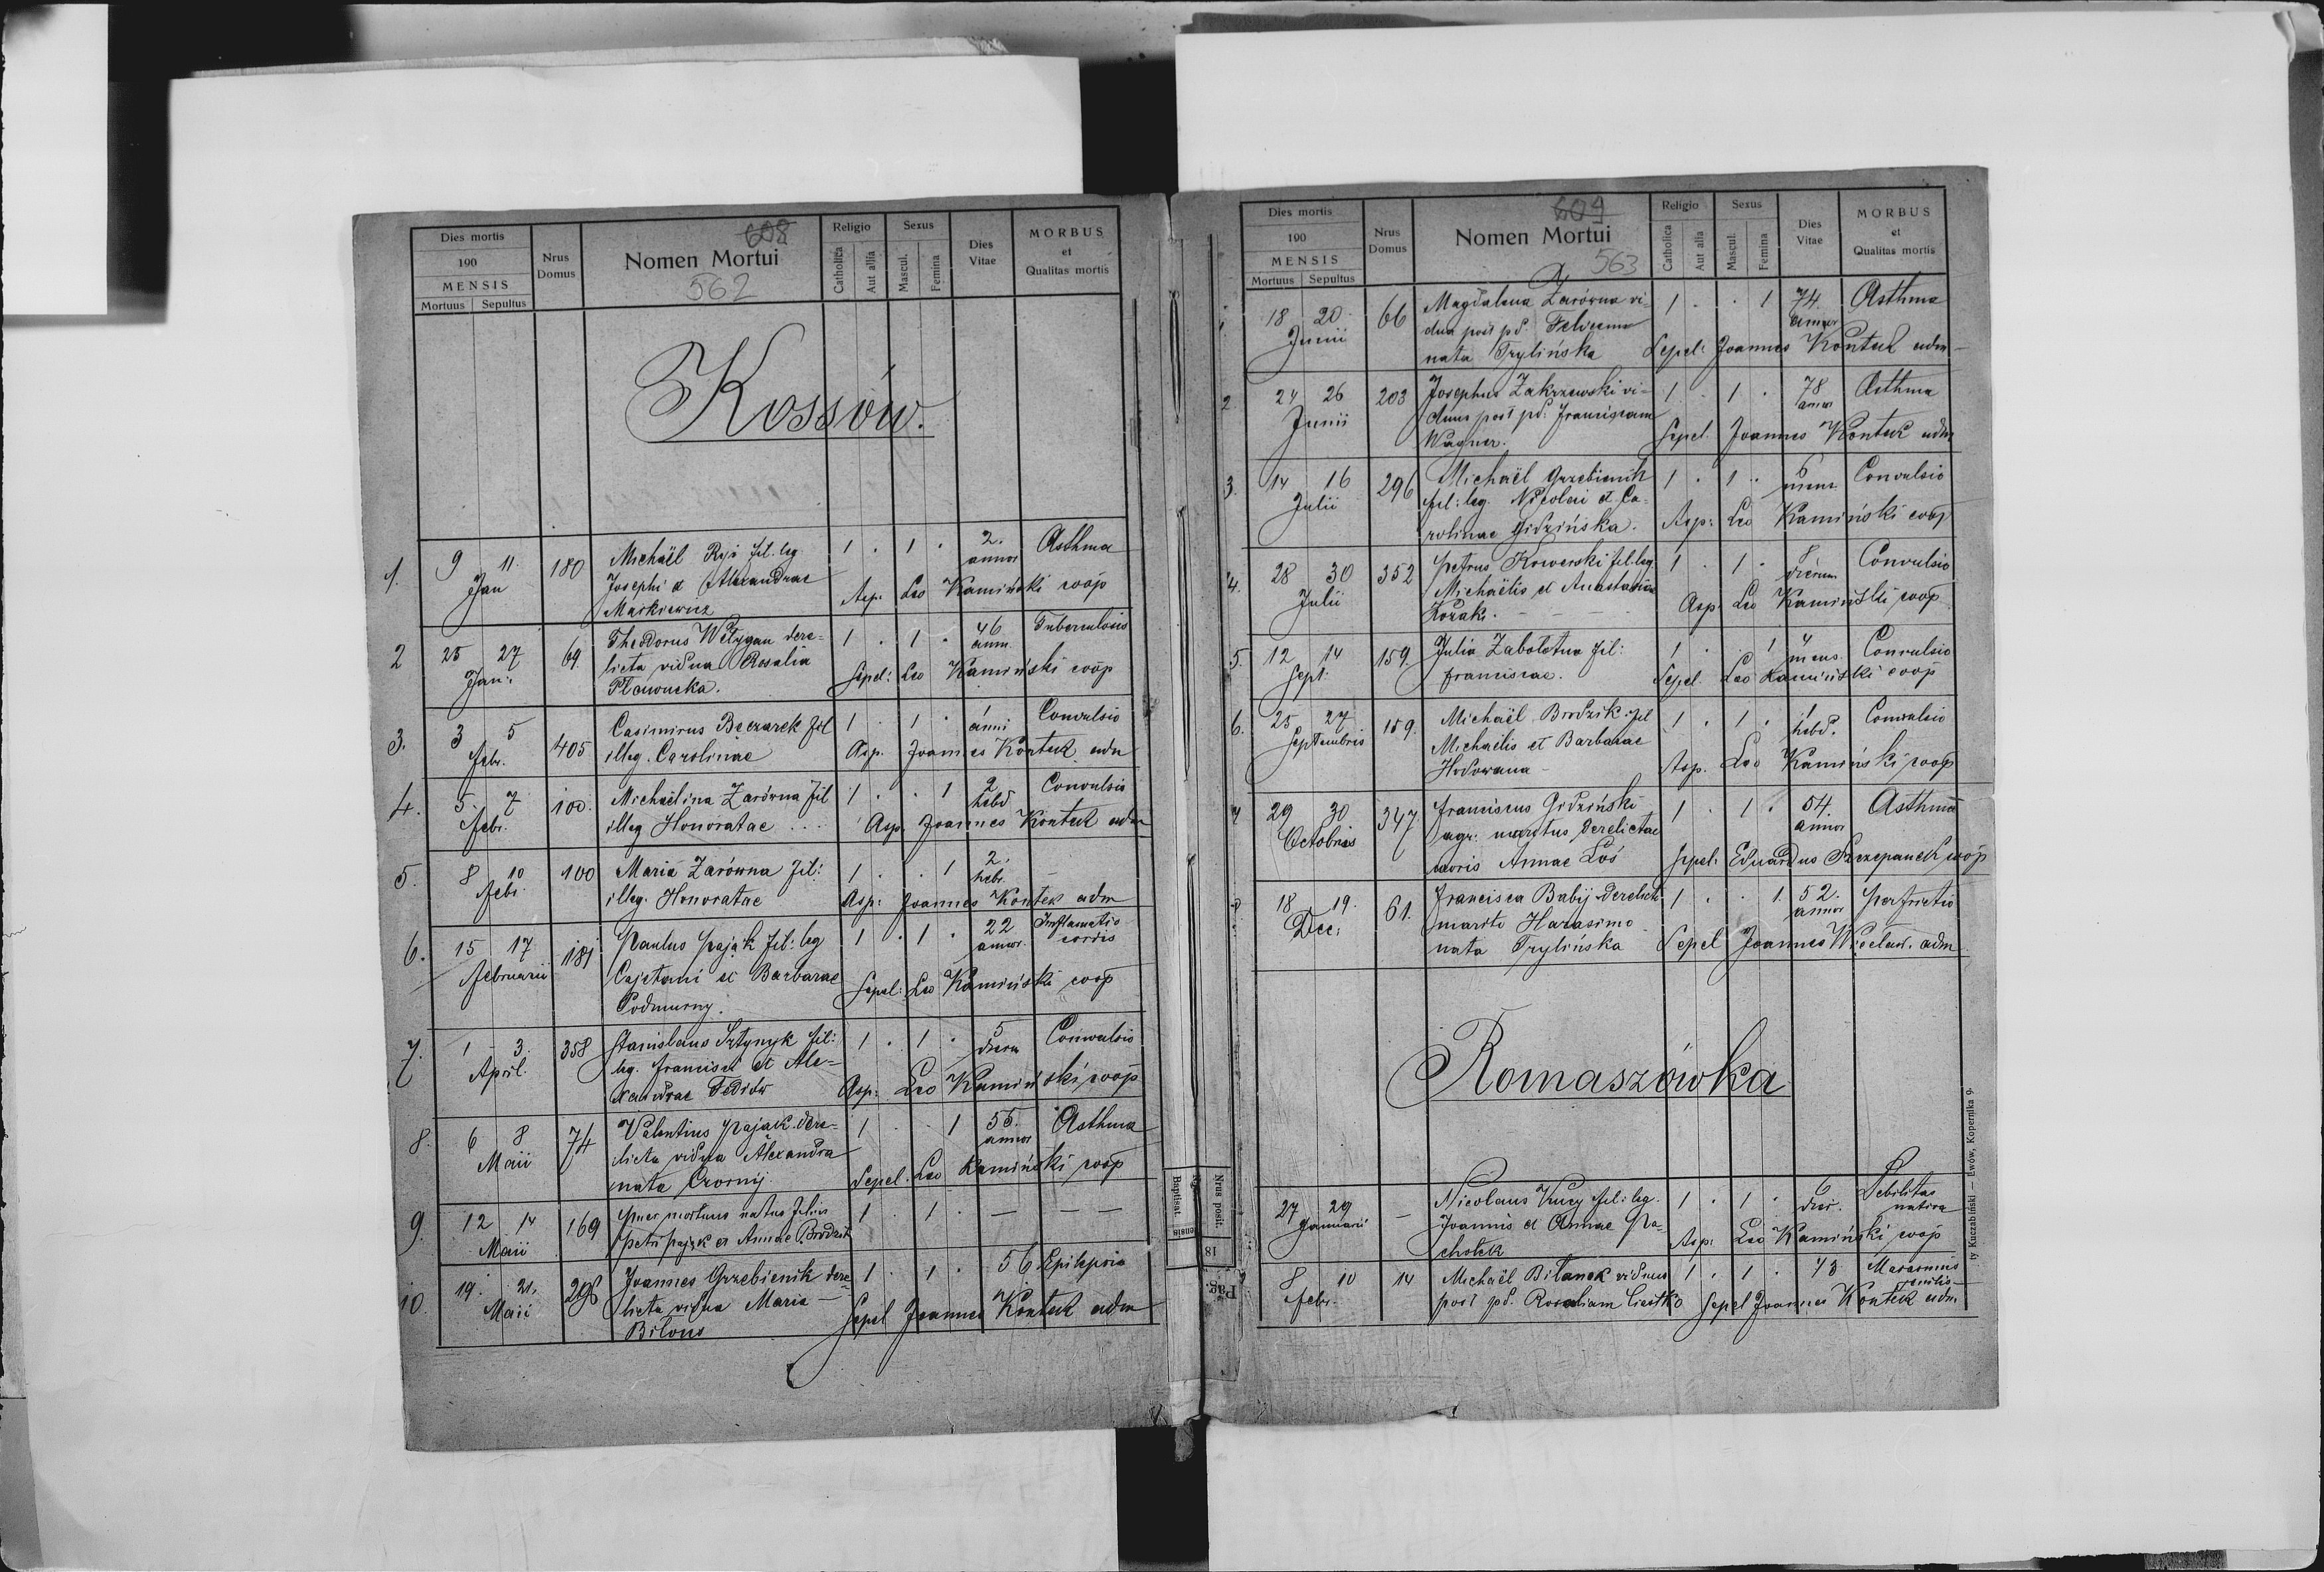 Dies mortis
190
MENSIS
Mortuus Sepultus
Nrus Domus
Nomen Mortui
608
562
Religio
Catholica
Aut alia
Sexus
Mascul.
Femina
Dies Vitae
MORBUS
et
Qualitas mortis
Kossów.
1. 9 11. 180 Michaël Ryś fil. leg 1 . 1 . 2. annor Asthma
Jan Josephi et Alexandrae
Markiewicz Asp. Leo Kamiński coop
2 25 27 69. Theodorus Wełygan dere- 1 . 1 . 46 ann. Tuberculosis
Jan: licta vidua Rosalia
Sepel: Leo Kamiński coop
3. 3 5 405 Casimirus Beczarek fil 1 . 1 . 1 anni Convulsio
Febr. illeg. Carolinae Asp. Joannes Kontek adm
4. 5. 7 100. Michaëlina Zarówna fil 1 . . 1 2 hebd Convulsio
Febr. illeg Honoratae . . . Asp. Joannes Kontek adm
5. 8 10 100 Maria Zarówna fil: 1 . . 1 2. hebd. –
Febr. illeg. Honoratae Asp: Joannes Kontek adm
6. 15 17 181 Paulus Pająk fil: leg 1 . 1 . 22 annor. Inflamatio cordis
Februarii Cajetani et Barbarae
Podmurny. Sepel: Leo Kamiński coop
7. 1 3. 358 Stanislaus Sztynyk fil: 1 . 1 . 5 dierum Convulsio
April. leg. Francisci et Ale-
xandrae Fediów Asp: Leo Kamiński coop
8. 6 8 74 Valentius Pająk dere- 1 . . 1 55. annor Asthma
Maii licta vidua Alexandra
nata Czornij. Sepel. Leo Kamiński coop
9. 12 14 169 Puer mortuus natus filius 1 . 1 . — — —
Maii Petri Pająk et Annae Brodzik
10. 19. 21. 298 Joannes Grzebienik dere 1 . 1 . 56 Epilepsia
Maii licta vidua Maria
Bilous Sepel Joannes Kontek adm
Dies mortis
190
MENSIS
Mortuus Sepultus
Nrus Domus
Nomen Mortui
609
563
Religio
Catholica
Aut alia
Sexus
Mascul.
Femina
Dies Vitae
MORBUS
et
Qualitas mortis
1 18 20. 66 Magdalena Zarówna vi- 1 . . 1 74. annor Asthma
Junii dua post pd.
nata Trylińska Sepel: Joannes Kontek adm
2. 24 26 203 Josephus Zakrzewski vi- 1 . 1 . 78 annor Asthma
Junii duus post pd: Franciscam
Wagner. Sepel. Joannes Kontek adm
3. 14 16 296 Michaël Grzebienik 1 . 1 . 6 mens Convulsio
Julii fil: leg. Nicolai et Ca-
rolinae Gidzińska. Asp: Leo Kamiński coop
4. 28 30 352 Petrus Kowerski fil. leg 1 . 1 . 8 dierum Convulsio
Julii Michaëlis et Anastasiae
Kozak. Asp. Leo Kamiński coop
5. 12 14 159. Julia Zabolotna fil: 1 . . 1 4 mens. Convulsio
Sept: Franciscae. Sepel. Leo Kamiński coop
6. 25 27 159. Michaël Brodzik fil 1 . 1 . 1 hebd. Convulsio
Septembris Michaëlis et Barbarae
Hodowana Asp. Leo Kamiński coop
7 29 30 347. Franciscus Gidziński 1 . 1 . 54. annor Asthma
Octobris agr. maritus derelictae
uxoris Annae Łoś Sepel: Eduardus Szczepanek coop
8 18 19. 61. Francisca Babij derelicto 1 . . 1. 52. annor Perfrictio
Dec: marito Harasimo
nata Trylińska Sepel Joannes adm
Romaszówka
27 29 — Nicolaus Kucy fil: leg. 1 . 1 . 6 dier. Debilitas nativa
Januarii Joannis et Annae Pa-
chołek Asp: Leo Kamiński coop
8 10 14 Michaël Bilanek viduus 1 . 1 . 73 Marasmus senilis
Febr. post pd. Rosaliam Ciastko Sepel Joannes Kontek adm
Baptisat.
ensis
Nrus posit.
18
Pag.
ty Kuczabiński — Lwów, Kopernika 9.